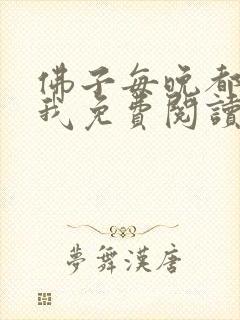 佛子每晚都
我免費閱讀
夢舞漢唐